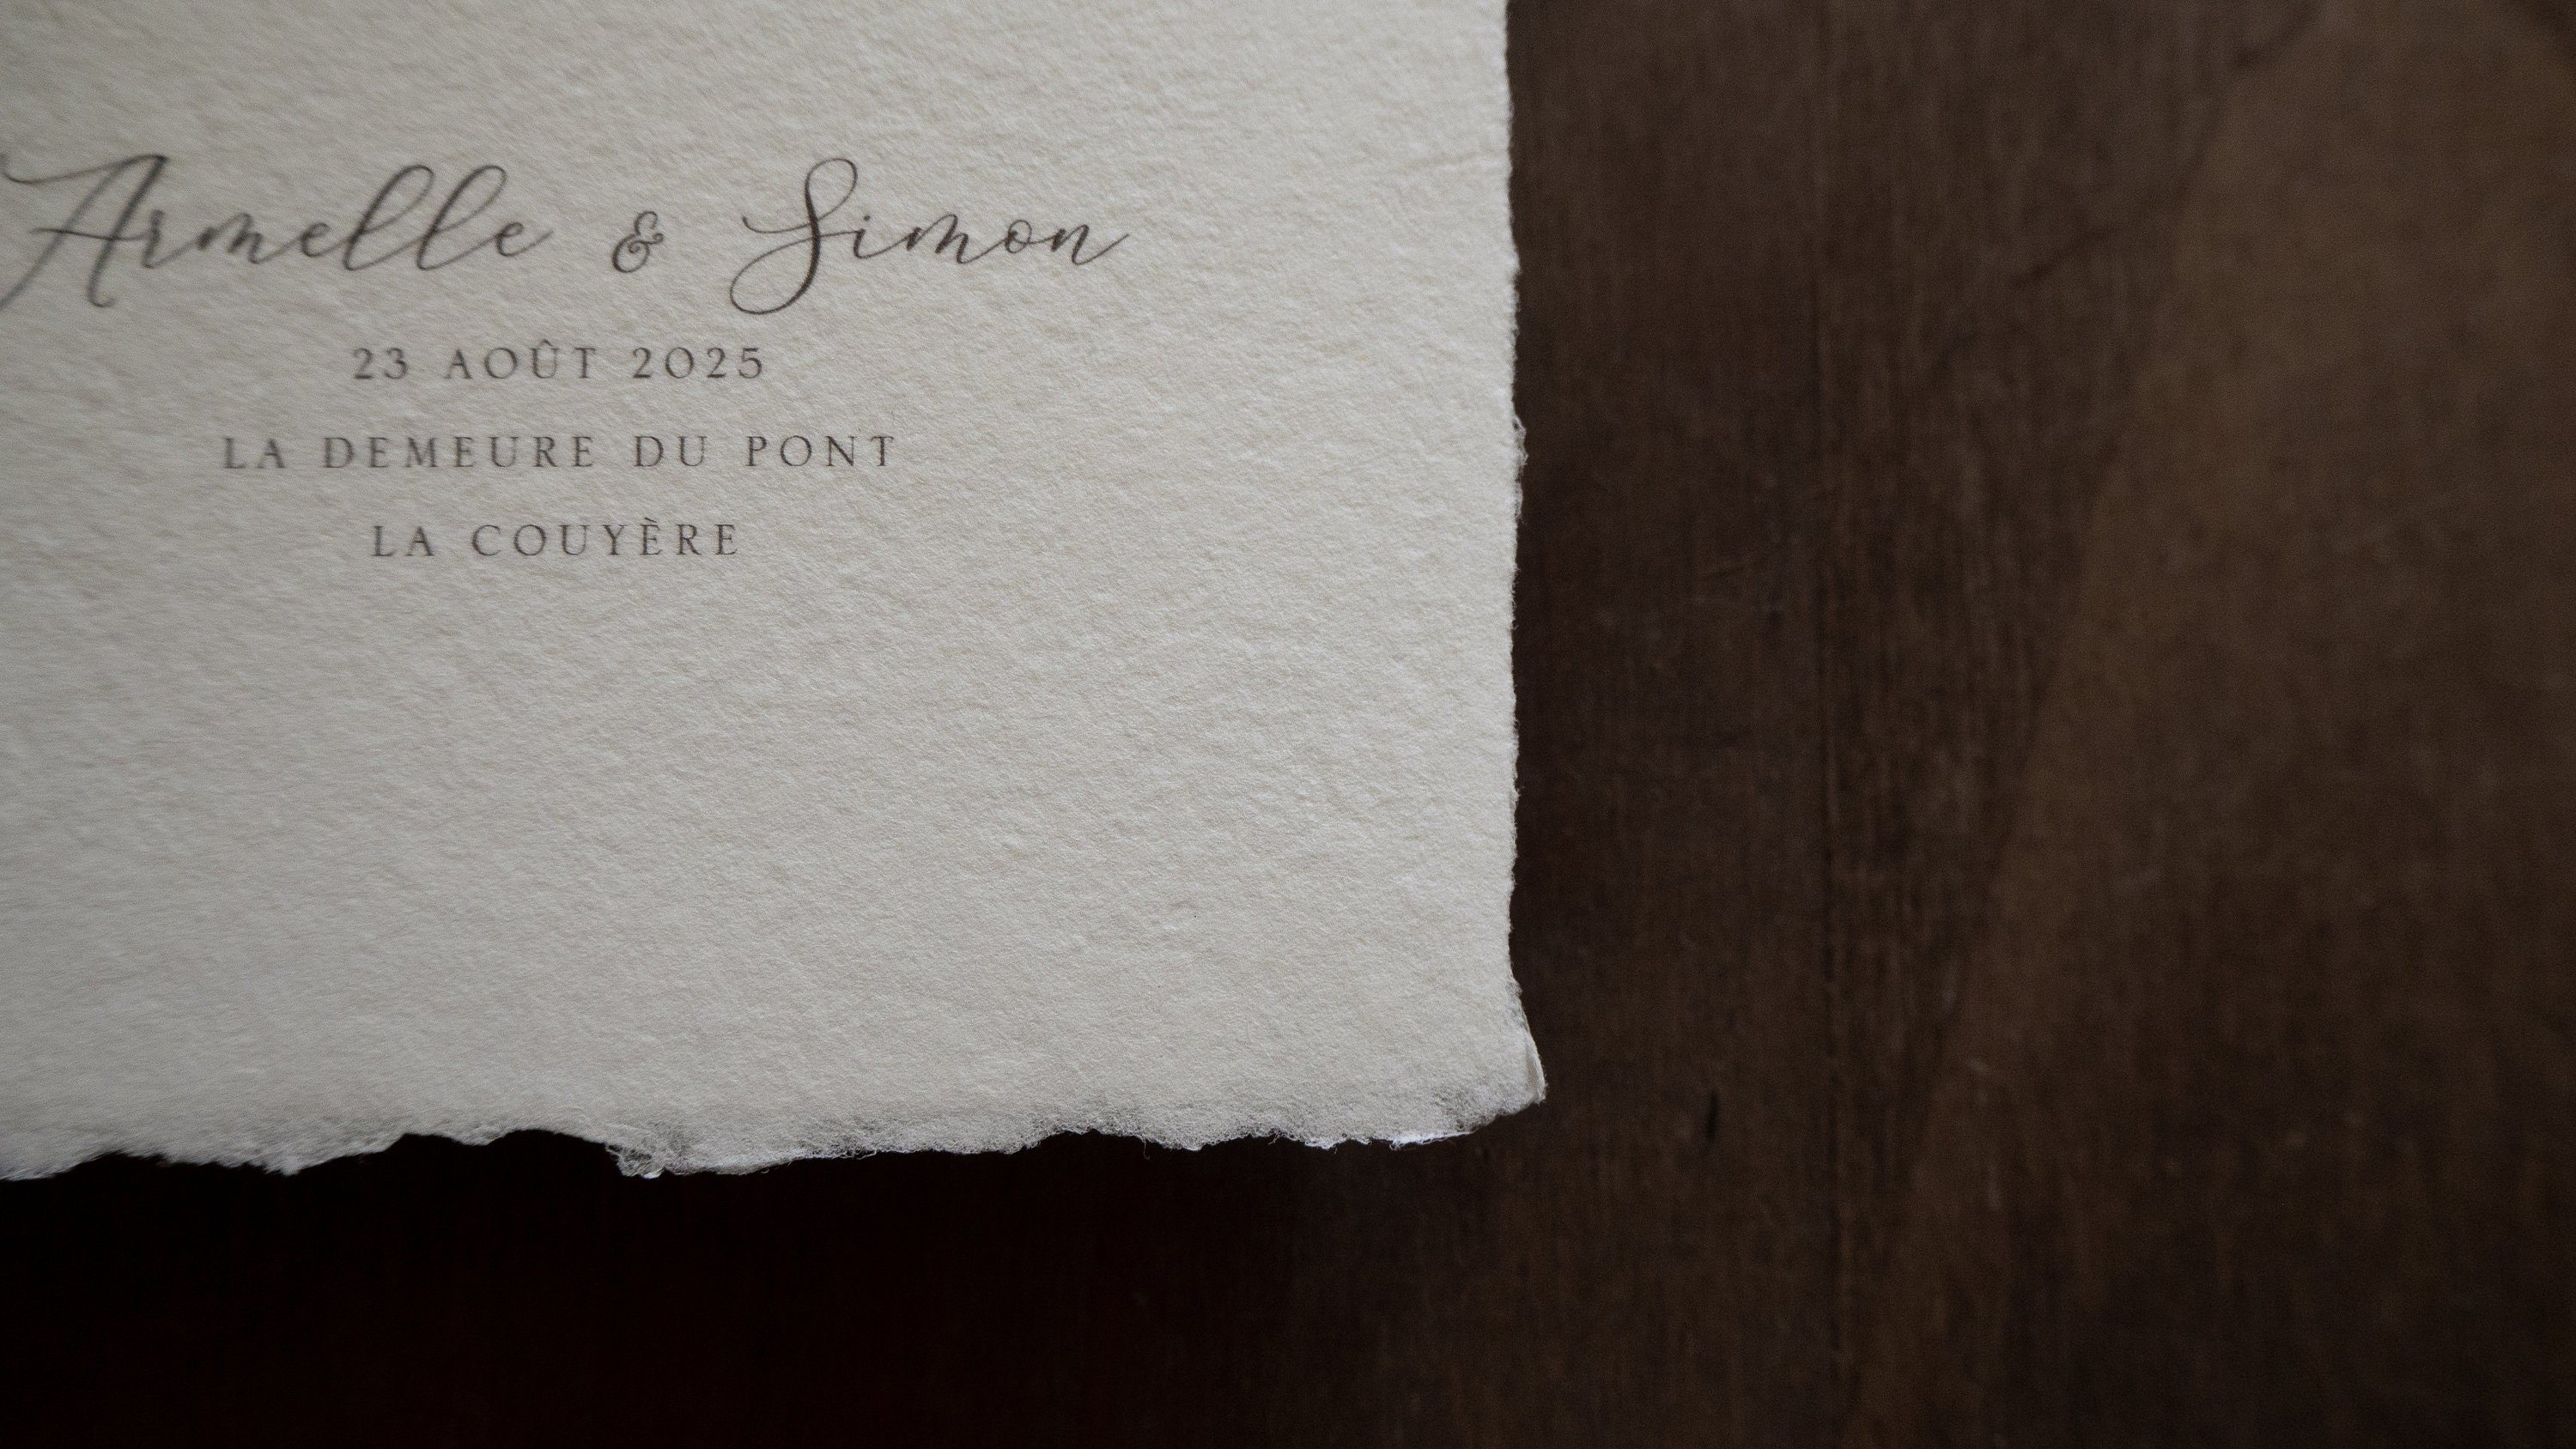 Armelle & Simon
23 AOÛT 2025
LA DEMEURE DU PONT
LA COUYÈRE